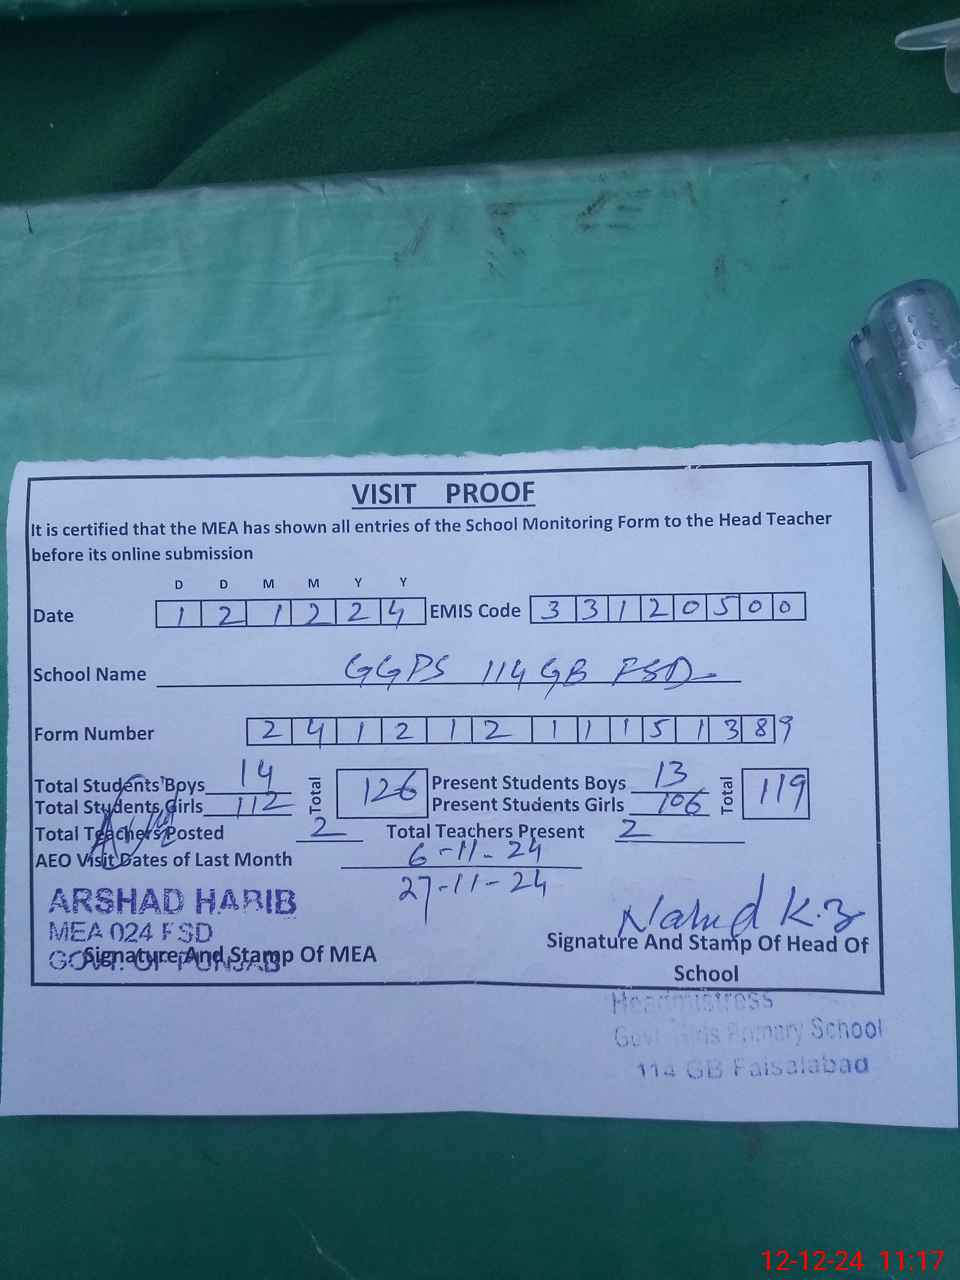 VISIT PROOF
It is certified that the MEA has shown all entries of the School Monitoring Form to the Head Teacher
before its online submission
D D M M Y Y
Date 1 2 1 2 2 4 EMIS Code 3 3 1 2 0 5 0 0
School Name GGPS 114 GB FSD
Form Number 2 4 1 2 1 2 1 1 1 5 1 3 8 9
Total Students Boys 14 Total 126 Present Students Boys 13 Total 119
Total Students Girls 112 Present Students Girls 106
Total Teachers Posted 2 Total Teachers Present 2
AEO Visit Dates of Last Month 6-11-24
27-11-24
ARSHAD HABIB
MEA 024 FSD
GOVT. OF PUNJAB
Signature And Stamp Of MEA
Signature And Stamp Of Head Of
School
Headmistress
Govt Girls Primary School
114 GB Faisalabad
12-12-24 11:17